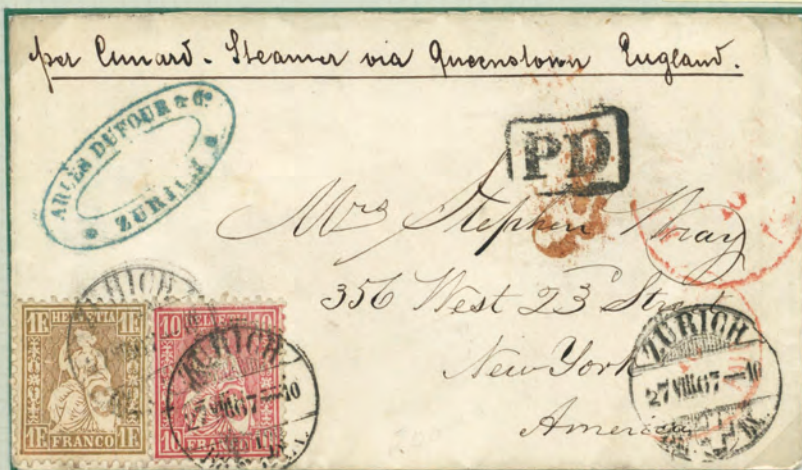 per Cunard - Steamer via Queenstown England.
ARLÈS DUFOUR & Cº
ZURICH
PD
Mrs Stephen Wray
356 West 23 Street
New York
America
1F HELVETIA 1F
1F FRANCO 1F
10 HELVETIA
10 FRANCO
ZÜRICH
27 VIII 67 - 10
ZÜRICH
27 VIII 67 - 10